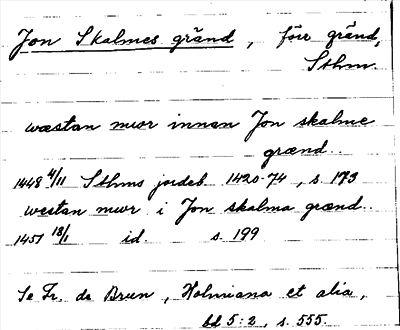 Jon Skalmes gränd, förr gränd,
Sthm.
wæstan mwr innan Jon skalme
grænd..
1448 4/11 Sthms jordeb. 1420-74, s. 173
westan mwr i Jon skalma grænd..
1451 18/1 id. s. 199
Se Fr. de Brun, Holmiana et alia,
bd 5:2, s. 555.